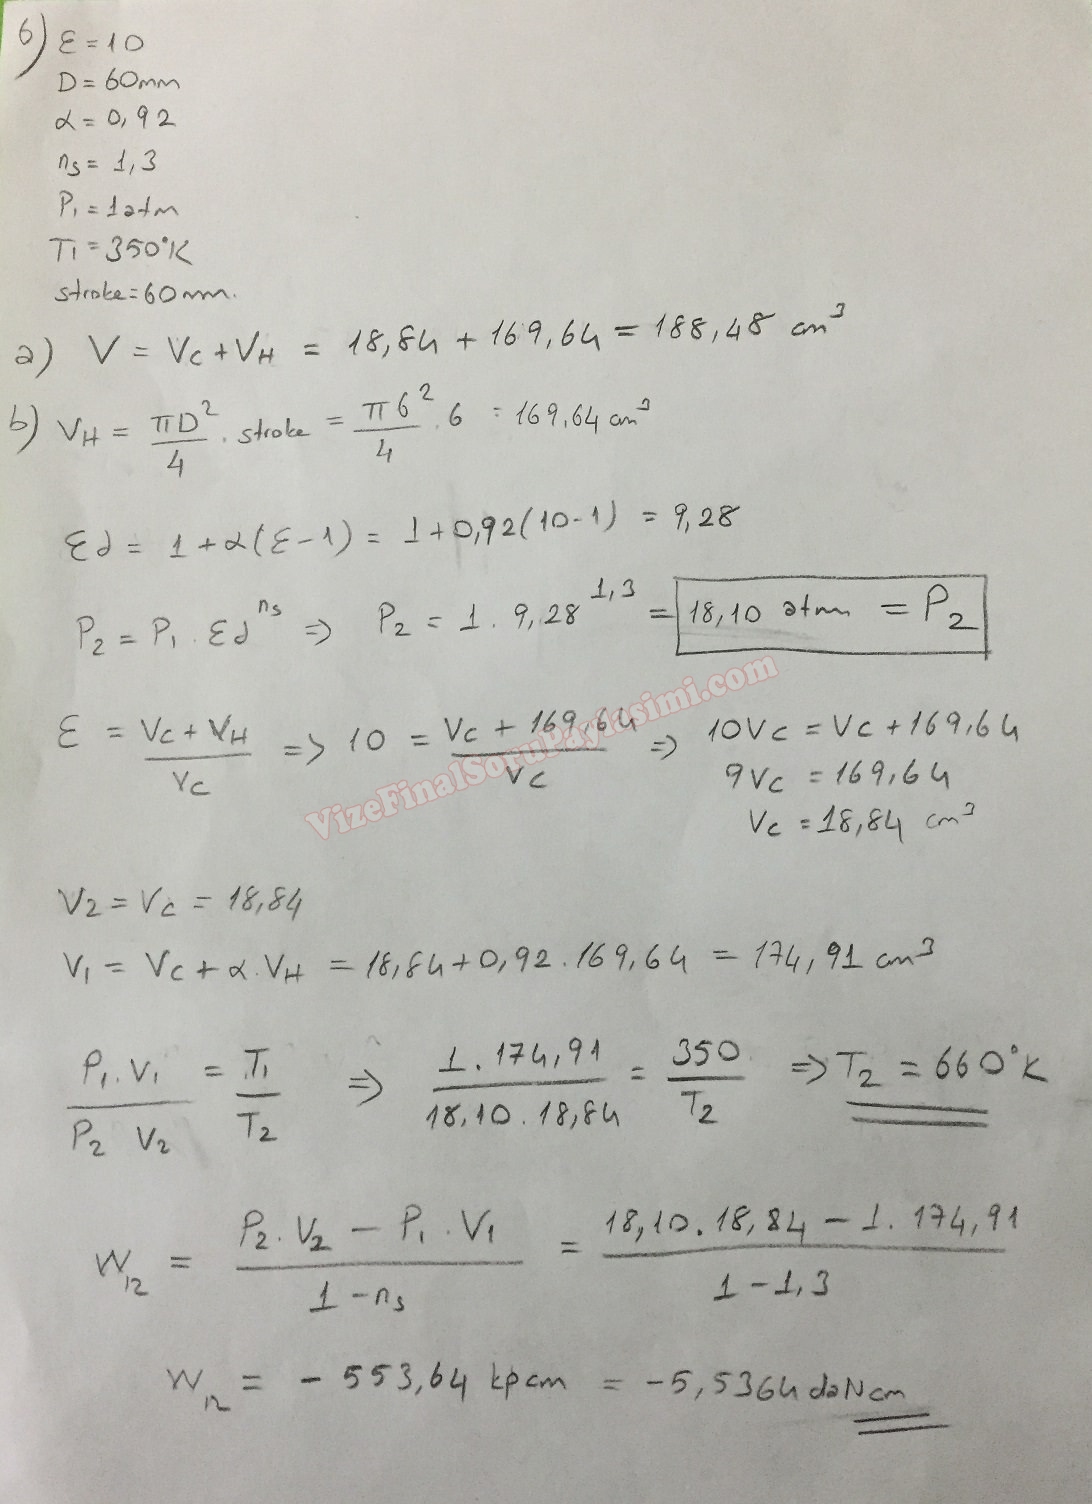 6) ε = 10
D = 60mm
α = 0,92
ns = 1,3
P1 = 1 atm
T1 = 350°K
stroke = 60mm.
a) V = Vc + VH = 18,84 + 169,64 = 188,48 cm³
b) VH = πD²/4 . stroke = π6²/4 . 6 = 169,64 cm³
εd = 1 + α(ε-1) = 1 + 0,92(10-1) = 9,28
P2 = P1 . εd^ns => P2 = 1 . 9,28^1,3 = 18,10 atm = P2
ε = (Vc + VH)/Vc => 10 = (Vc + 169,64)/Vc => 10Vc = Vc + 169,64
9Vc = 169,64
Vc = 18,84 cm³
VizeFinalSoruPaylasimi.com
V2 = Vc = 18,84
V1 = Vc + α.VH = 18,84 + 0,92 . 169,64 = 174,91 cm³
(P1 . V1)/(P2 V2) = T1/T2 => (1 . 174,91)/(18,10 . 18,84) = 350/T2 => T2 = 660°K
W12 = (P2 . V2 - P1 . V1)/(1 - ns) = (18,10 . 18,84 - 1 . 174,91)/(1 - 1,3)
W12 = - 553,64 kpcm = -5,5364 daNcm